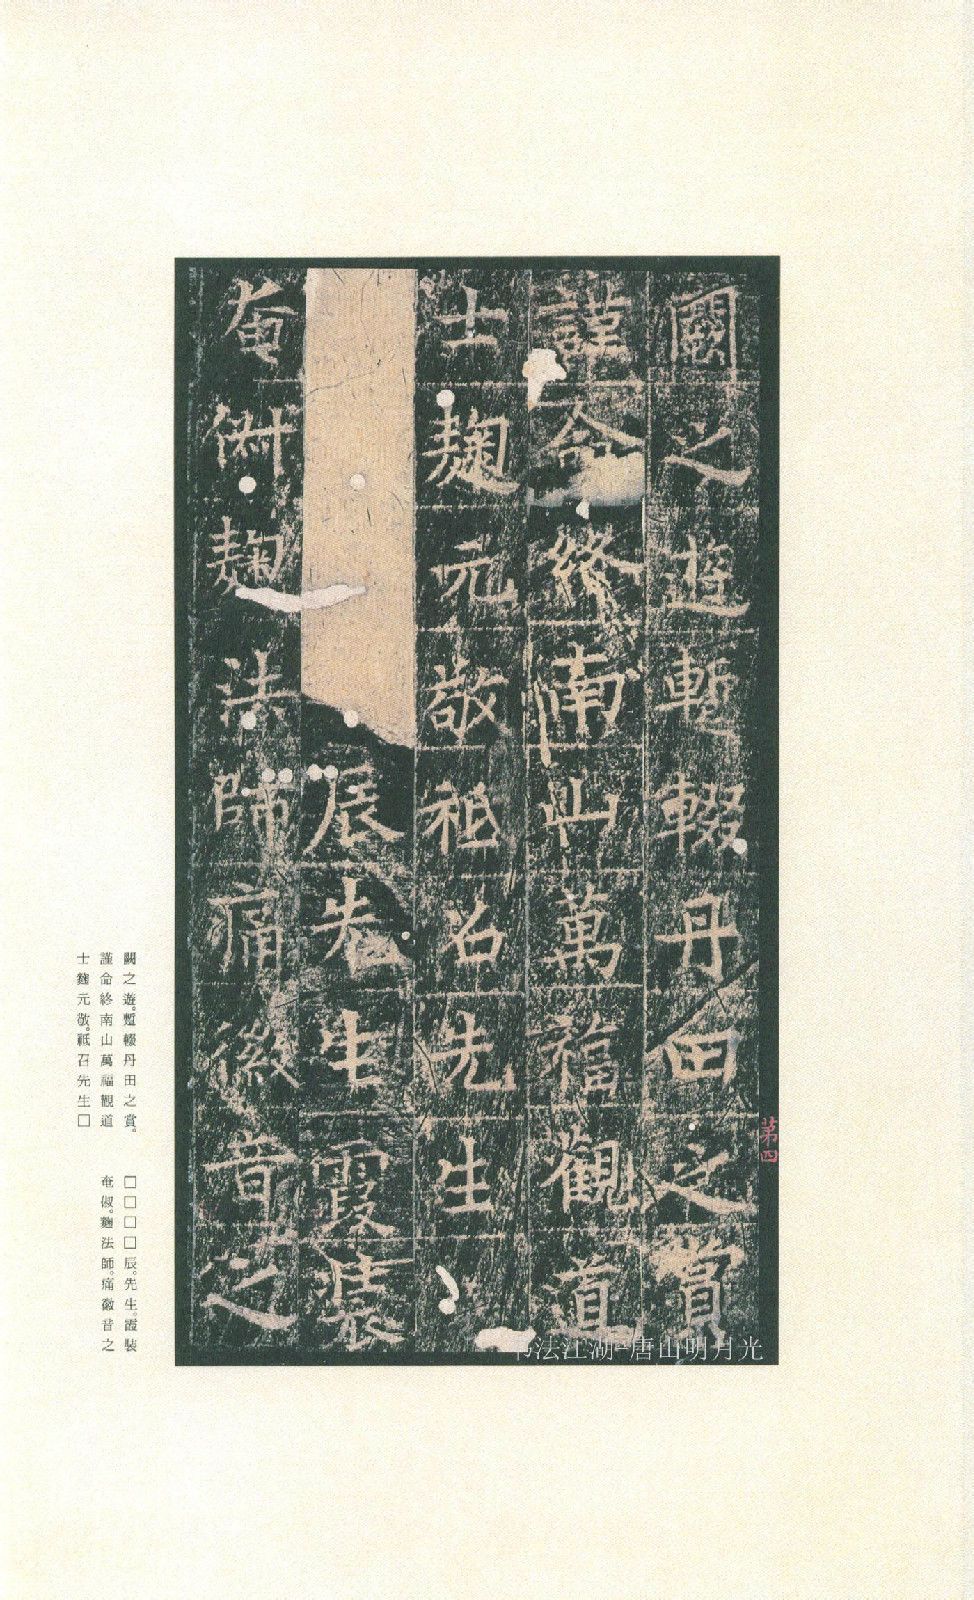 闕之遊暫輟丹田之賞
謹命終南山萬福觀道
士麹元敬祗召先生
辰先生霞裝
奄俶麹法師痛徽音之
第四
闕之遊。暫輟丹田之賞。
謹命終南山萬福觀道
士麴元敬。祗召先生□
□□□□辰。先生。霞裝
奄俶。麴法師。痛徽音之
书法江湖-唐山明月光